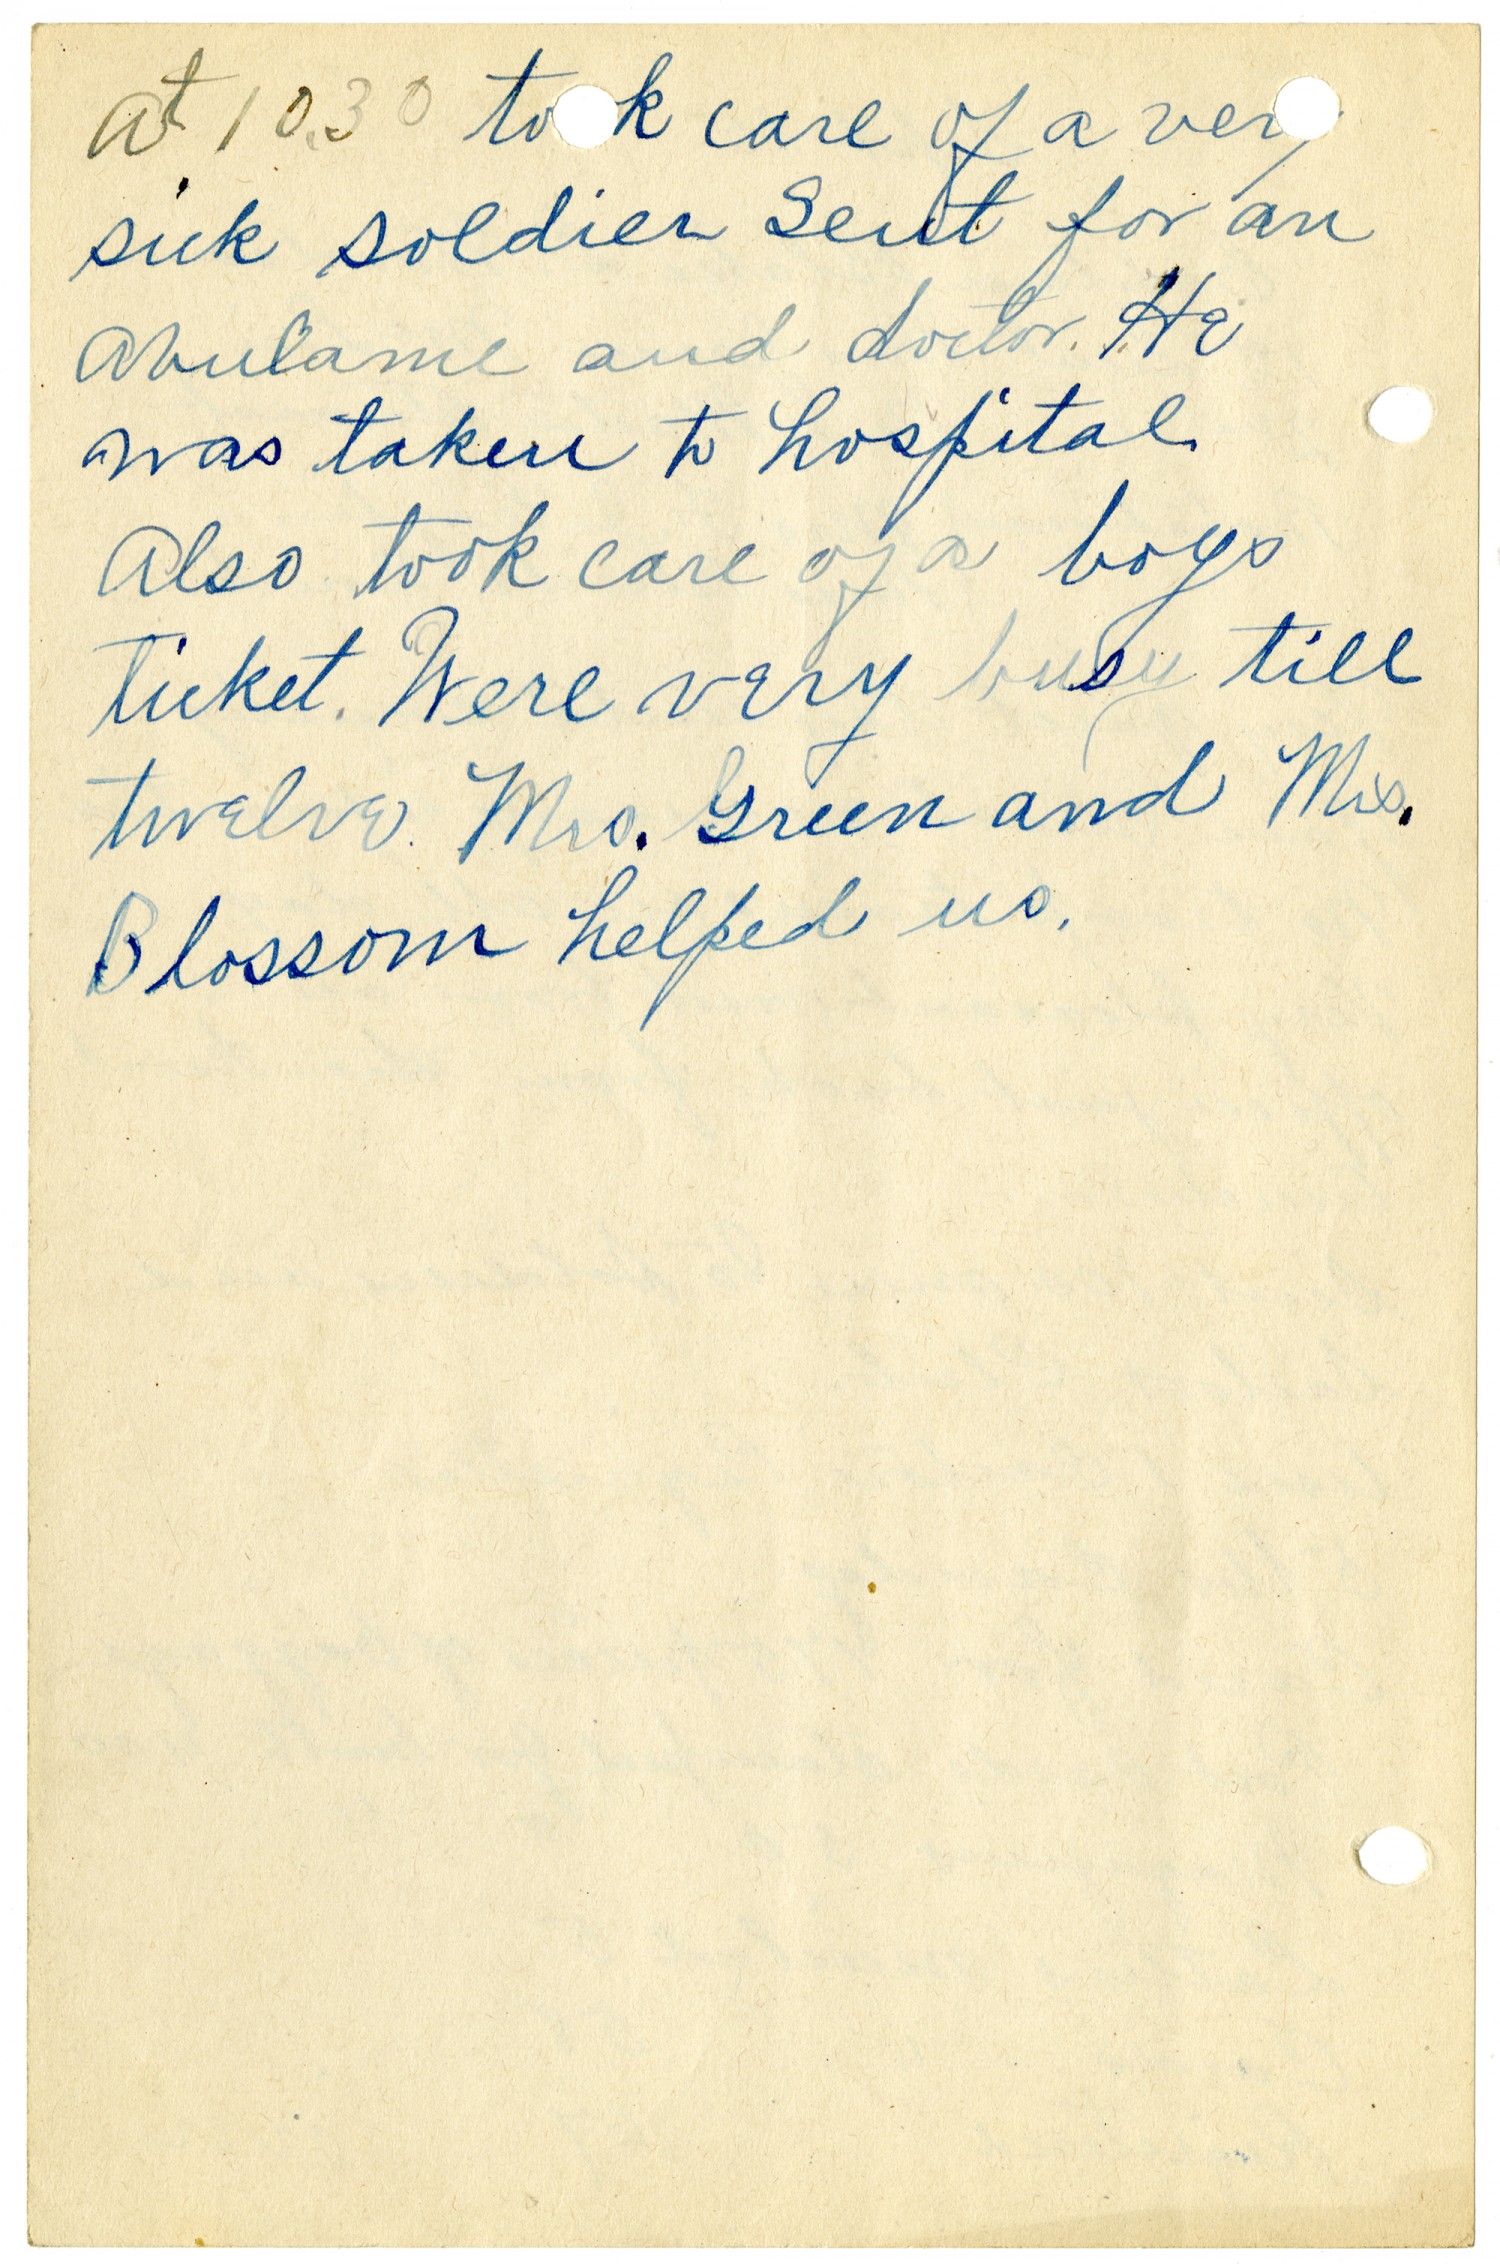 At 10.30 took care of a very
sick soldier Sent for an
Abulance and doctor. He
was taken to hospital.
Also took care of a boys
ticket. Were very busy till
twelve. Mrs. Green and Mrs.
Blossom helped us.